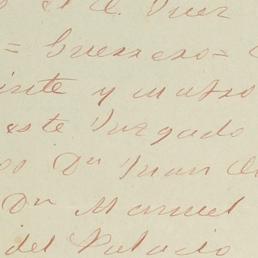 el C. Juez
= Guerrero =
y cuatro
este Juzgado
Dn Juan
Dn Manuel
del Palacio